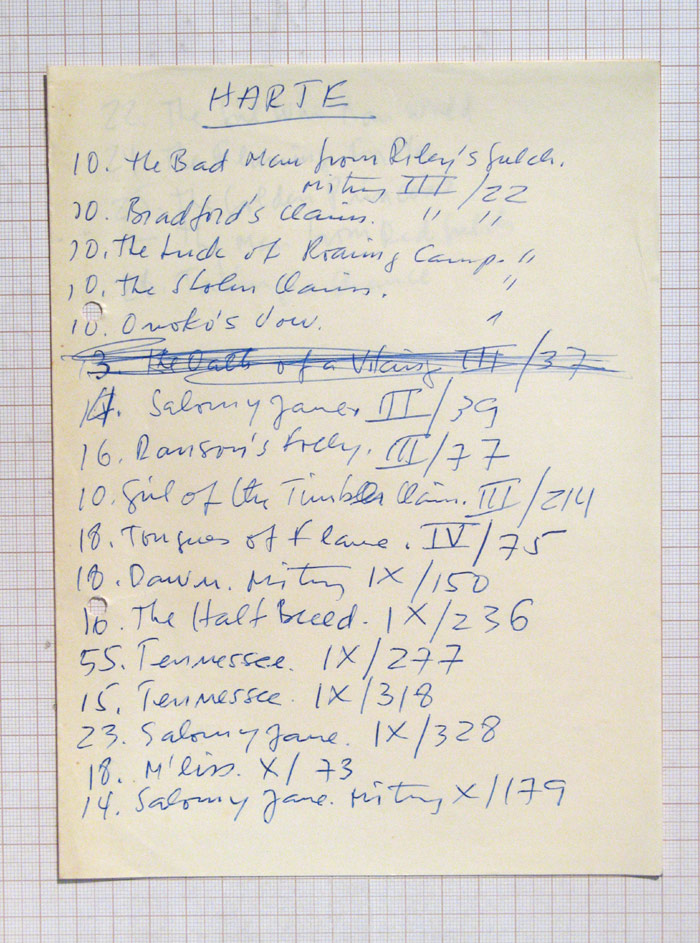 HARTE
10. The Bad Man from Riley's Gulch.
Mitry III/22
10. Bradford's Claim. " "
10. The Luck of Roaring Camp. "
10. The Stolen Claim. "
10. Onoko's Vow. "
13. The Oath of a Viking III/37
14. Salomy Jane. III/39
16. Ranson's Folly. III/77
10. Girl of the Timber Claim. III/214
18. Tongues of Flame. IV/75
18. Dawn. Mitry IX/150
16. The Half Breed. IX/236
55. Tennessee. IX/277
15. Tennessee. IX/318
23. Salomy Jane. IX/328
18. M'liss. X/73
14. Salomy Jane. Mitry X/179